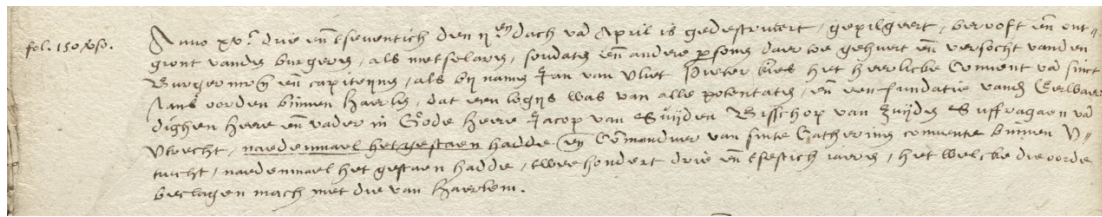 fol. 150 vso.
Anno xvc. drie ende tseventich den iien dach van April is gedestrueert, gepilgeert, berooft ende ont-
gront vande burgeren, als metselaers, soudaten ende andere persoens daer toe gehuert ende versocht vanden
Burgermrs ende capiteyns, als bij namen Jan van Vliet Pieter het heerlicke Convent van sinct
Jans oorden binnen Haerlem, dat een logijs was van alle potentaten, ende een fundatie vanden Eerwaer-
dighen heere ende vader in Gode heere Jacop van Suijden Bisschop van Zuijden Suffragaen van
Utrecht, naedenmael het gestaen hadde en Commanduer van sinte Catherinen convente binnen U-
trecht, naedenmael het gestaen hadde, twee hondert drie ende tsestich iaeren, het welcke die oorde
beclagen mach met die van Haerlem.